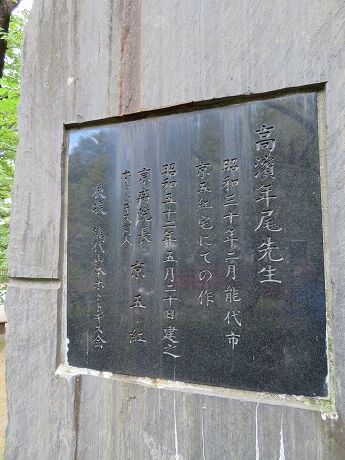 高濱年尾先生
昭和三十年二月能代市
京五紅宅にての作
昭和五十二年五月二十日建之
京病院長 京五紅
ホトトギス同人
後援 能代山本ホトトギス会